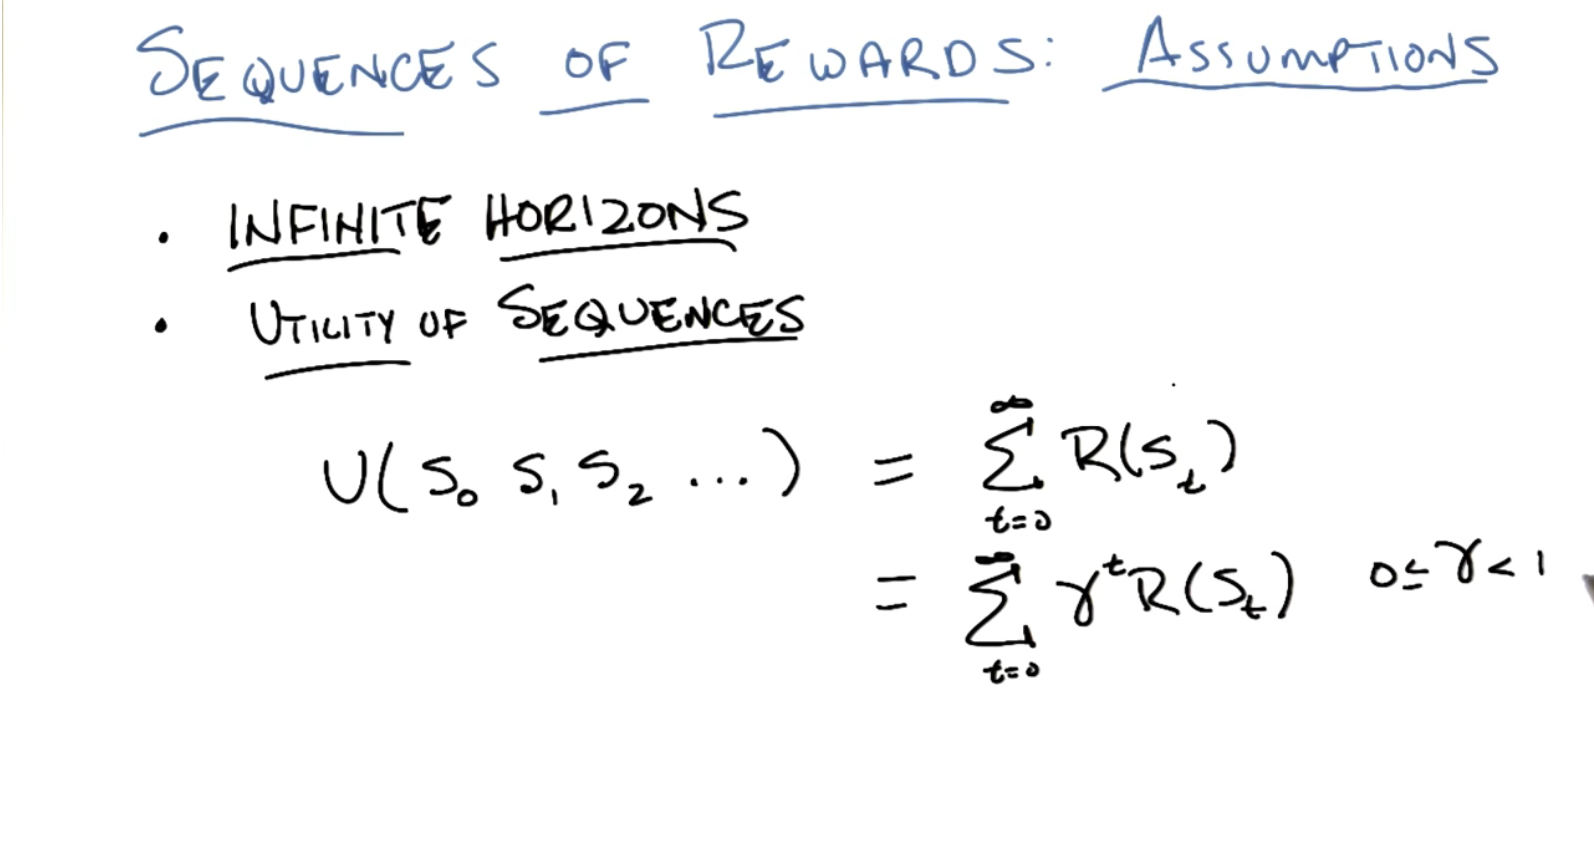 SEQUENCES OF REWARDS: ASSUMPTIONS
• INFINITE HORIZONS
• UTILITY OF SEQUENCES
U(S₀ S₁ S₂ ...) = ∑_{t=0}^{∞} R(S_t)
= ∑_{t=0}^{∞} γ^t R(S_t) 0 ≤ γ < 1